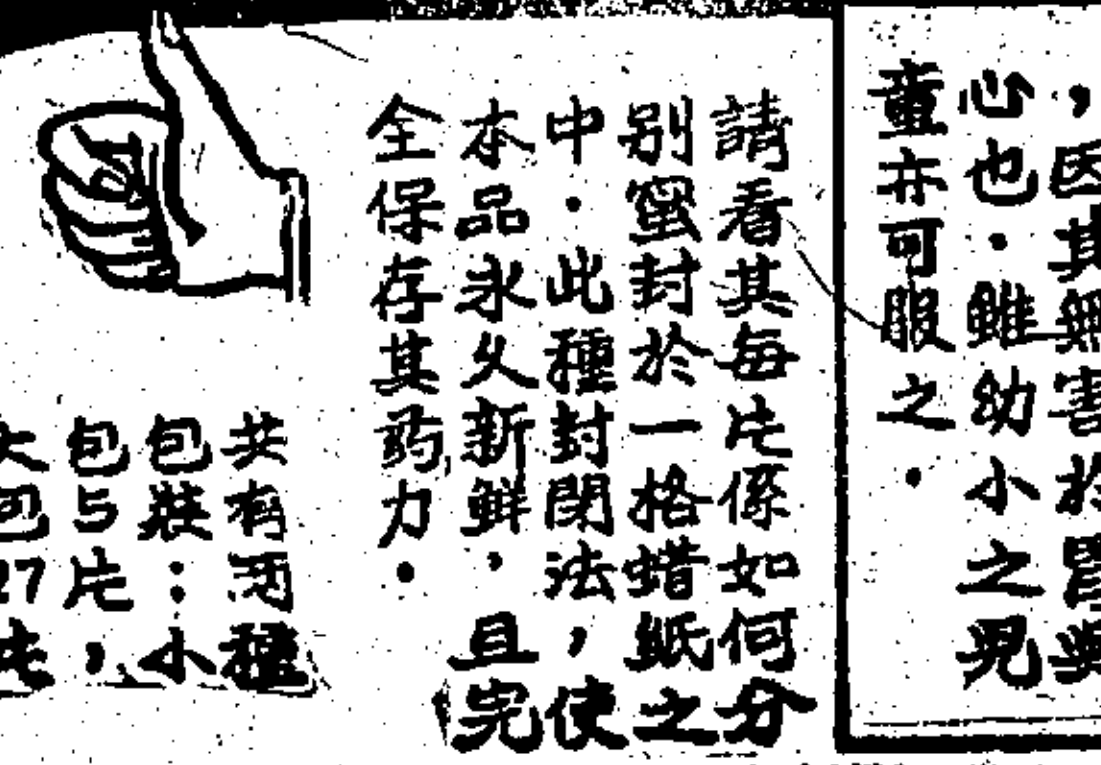 ，因其無害於胃與
心也．雖幼小之兒
童亦可服之．
請看其每片係如何分
别蜜封於一格蜡紙之
中．此種封閉法，使
本品永久新鮮，且完
全保存其药力．
共有两種
包裝：小
包5片，
大包27片